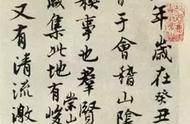 年歲在癸丑
于會稽山陰
稧事也羣賢
咸集此地有崇山峻
又有清流激